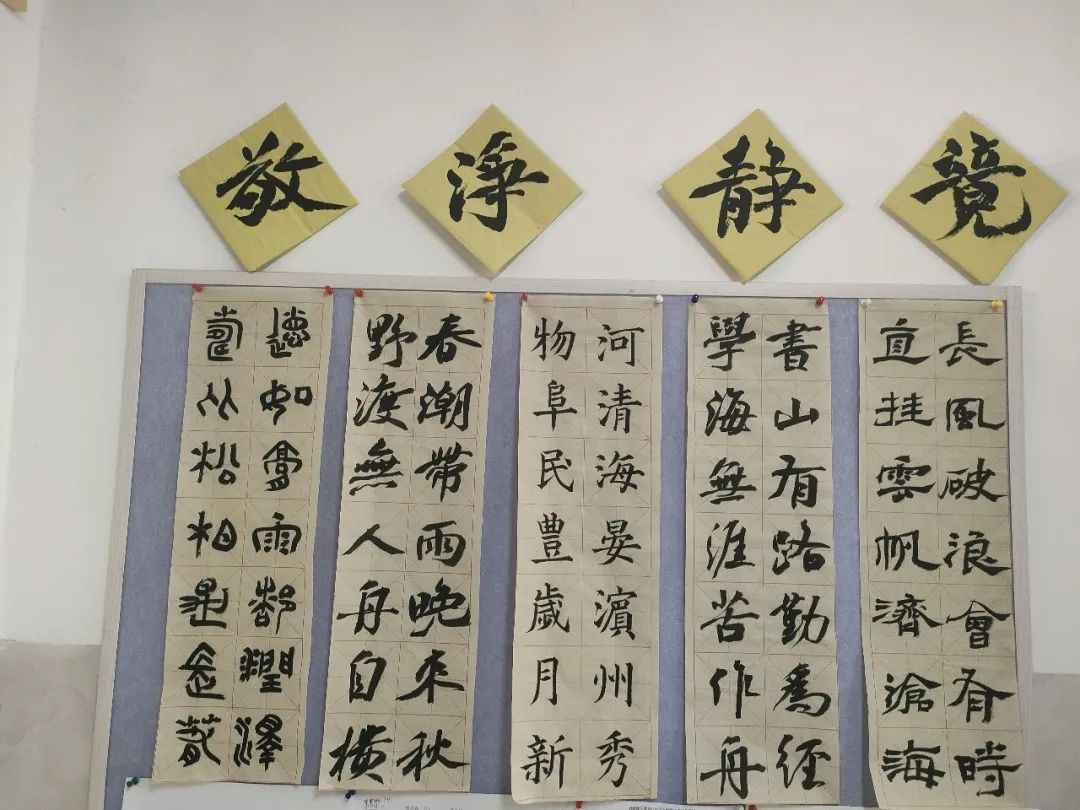 敬 淨 静 竟
長風破浪會有時
直挂雲帆濟滄海
書山有路勤為經
學海無涯苦作舟
河清海晏濱州秀
物阜民豊歲月新
春潮帶雨晚来秋
野渡無人舟自横
德如膏雨都潤澤
壽比松柏是